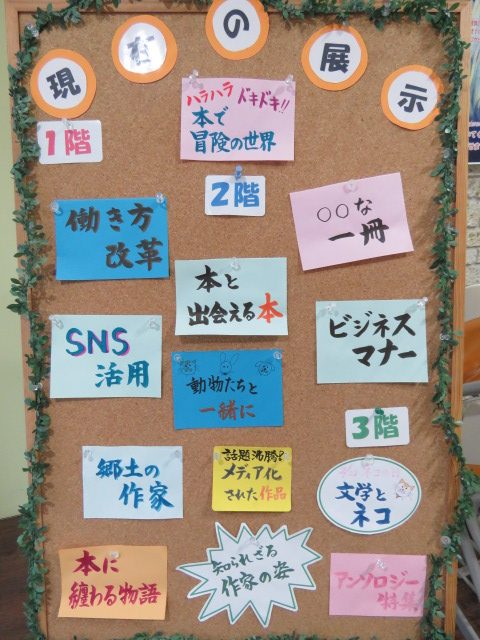 現在の展示
1階
ハラハラ
ドキドキ!!
本で
冒険の世界
2階
働き方
改革
○○な
一冊
本と
出会える本
SNS
活用
ビジネス
マナー
動物たちと
一緒に
3階
郷土の
作家
話題沸騰!?
メディア化
された作品
文学と
ネコ
本に
纏わる物語
知られざる
作家の姿
アンソロジー
特集